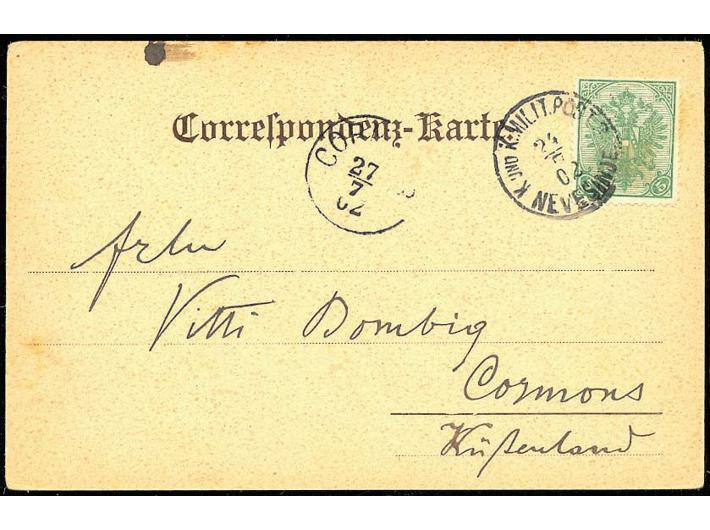 Correspondenz-Karte
K UND K. MILIT. POST
24
02
NEVESINJE
5
27
7
02
Frln
Vitti Bombig
Cormons
Küstenland